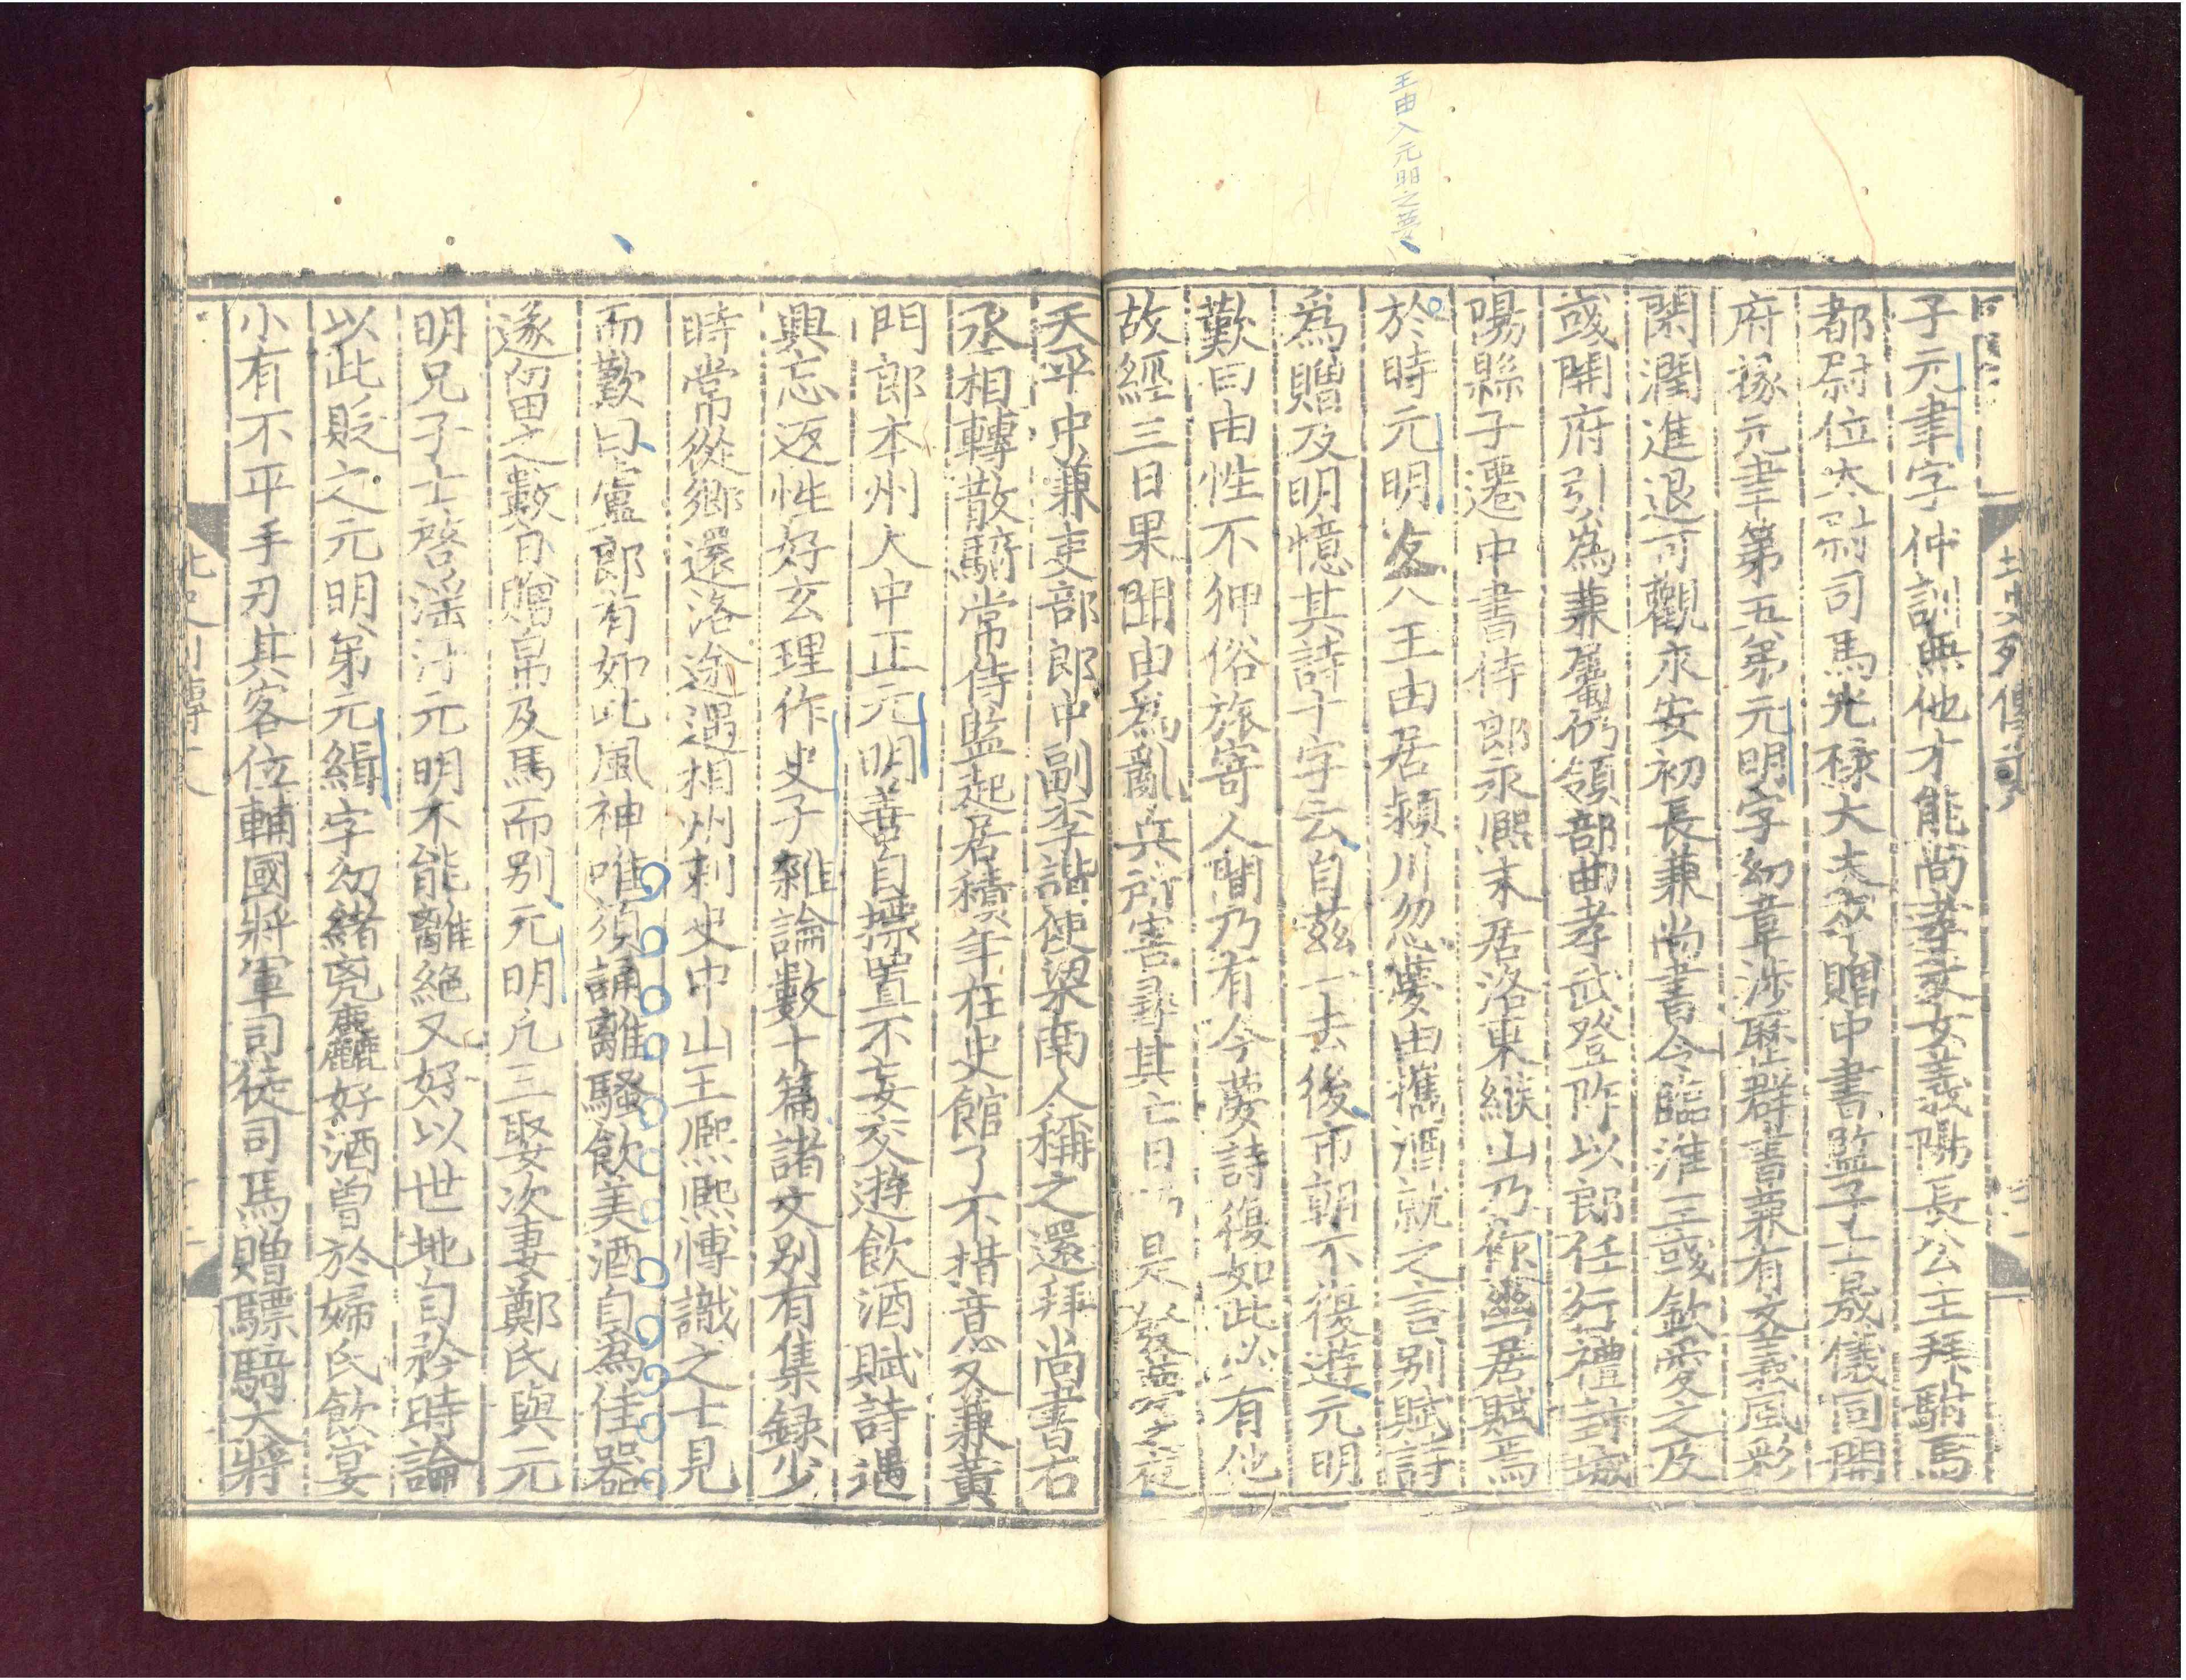 王由入元明之夢
子元聿字仲訓無他才能尚孝文女義陽長公主拜駙馬
都尉位太尉司馬光祿大夫卒贈中書監子士晟儀同開
府掾元聿第五弟元明字幼章涉歷群書兼有文義風彩
閑潤進退可觀永安初長兼尚書令臨淮王彧欽愛之及
彧開府引爲兼屬仍領部曲孝武登阼以郎任行禮封城
陽縣子遷中書侍郎永熙末居洛東緱山乃作幽居賦焉
於時元明友人王由居潁川忽夢由攜酒就之言別賦詩
爲贈及明憶其詩十字云自茲一去後市朝不復遊元明
歎曰由性不狎俗旅寄人間乃有今夢詩復如此必有他
故經三日果聞由爲亂兵所害尋其亡日乃是發夢之夜
天平中兼吏部郎中副李諧使梁南人稱之還拜尚書右
丞相轉散騎常侍監起居積年在史館了不措意又兼黃
門郎本州大中正元明善自標置不妄交遊飲酒賦詩遇
興忘返性好玄理作史子雜論數十篇諸文別有集録少
時常從鄉還洛途遇相州刺史中山王熙熙博識之士見
而歎曰盧郎有如此風神唯須誦離騷飲美酒自爲佳器
遂留之數日贈帛及馬而別元明凡三娶次妻鄭氏與元
明兄子士啓淫汙元明不能離絕又好以世地自矜時論
以此貶之元明弟元緝字幼緒兇麤好酒曾於婦氏飲宴
小有不平手刃其客位輔國將軍司徒司馬贈驃騎大將
北史列傳十八